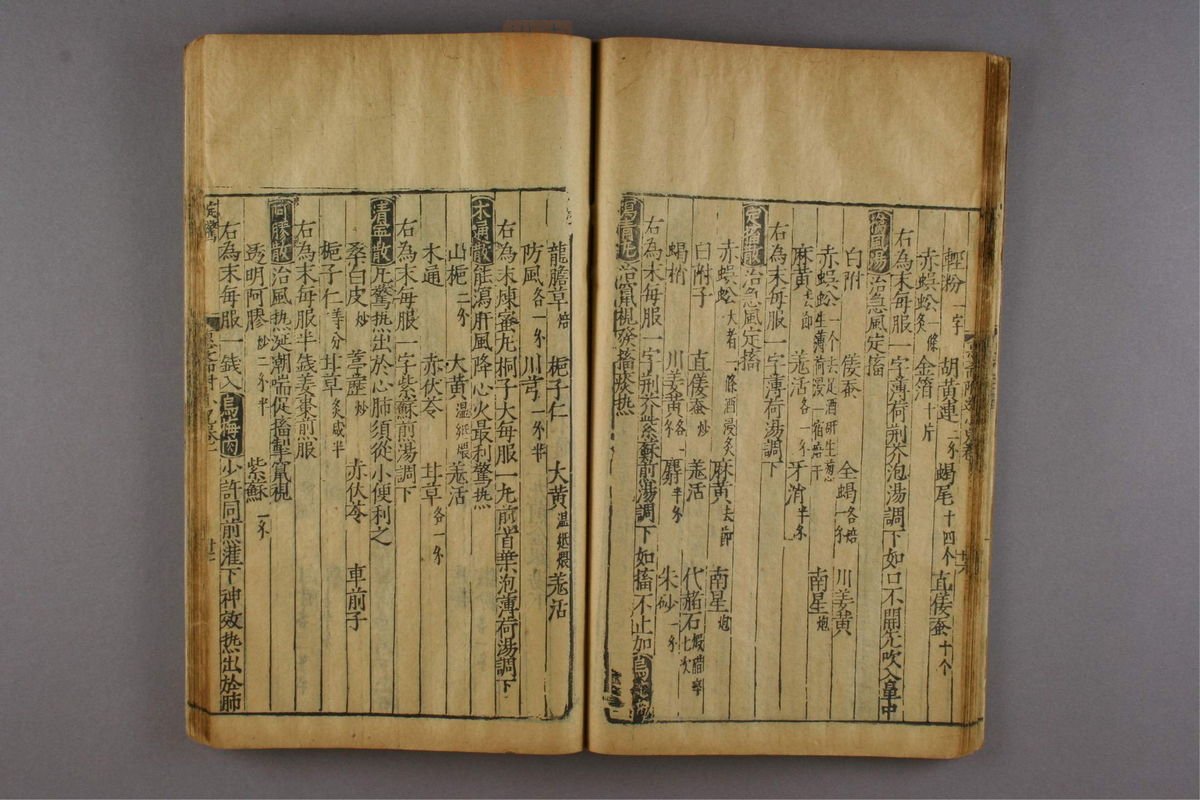 輕粉一字　胡黃連二分　蝎尾十四个　直僵蚕十个
赤蜈蚣一條炙　金箔十片
右為末每服一字薄荷荊芥泡湯調下如口不開先吹入鼻中
治急風定搐
白附　僵蚕　全蝎各焙一分　川姜黄
赤蜈蚣一个去足酒研生薄荷浸一宿焙干
麻黄去節　羗活各一分　牙消半分　南星炮
右為末每服一字薄荷湯調下
定搐散治急風定搐
赤蜈蚣大者一條酒浸炙　麻黄去節　南星炮
白附子　直僵蚕炒　羗活　代赭石煅醋淬七次
蝎梢　川姜黄各一分　麝半分　朱砂一分
右為末每服一字荊芥紫蘇煎湯調下如搐不止加烏
瀉青丸治竄視發搐痰热
龍膽草焙　梔子仁　大黄溫紙煨　羗活
防風各一分　川芎一分半
右為末煉蜜丸桐子大每服一丸煎葉泡薄荷湯調下
木通散能瀉肝風降心火最利驚热
山梔二分　大黄溫紙煨　羗活
木通　赤伏苓　甘草各一分
右為末每服一字紫蘇煎湯調下
清散凡驚热出於心肺須從小便利之
桑白皮炒　葶藶炒　赤伏苓　車前子
梔子仁等分　甘草炙减半
右為末每服半錢姜棗煎服
阿膠散治風热涎潮喘促搐掣竄視
透明阿膠炒二分半　紫蘇一分
右為末每服一錢入烏梅肉少許同煎灌下神效热出於肺
定驚